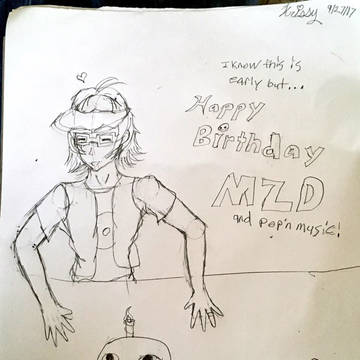 Krissy 9/27/17
I know this is
early but...
Happy
Birthday
MZD
and pop'n music!